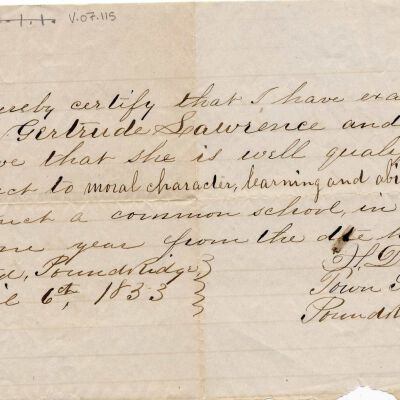 -1.1. V.07.115
eby certify that I have exa
Gertrude Lawrence and
ve that she is well quali
ect to moral character, learning and abi
uct a common school, in
one year from the date h
d, PoundRidge,
il 6th, 1833
Town
PoundR